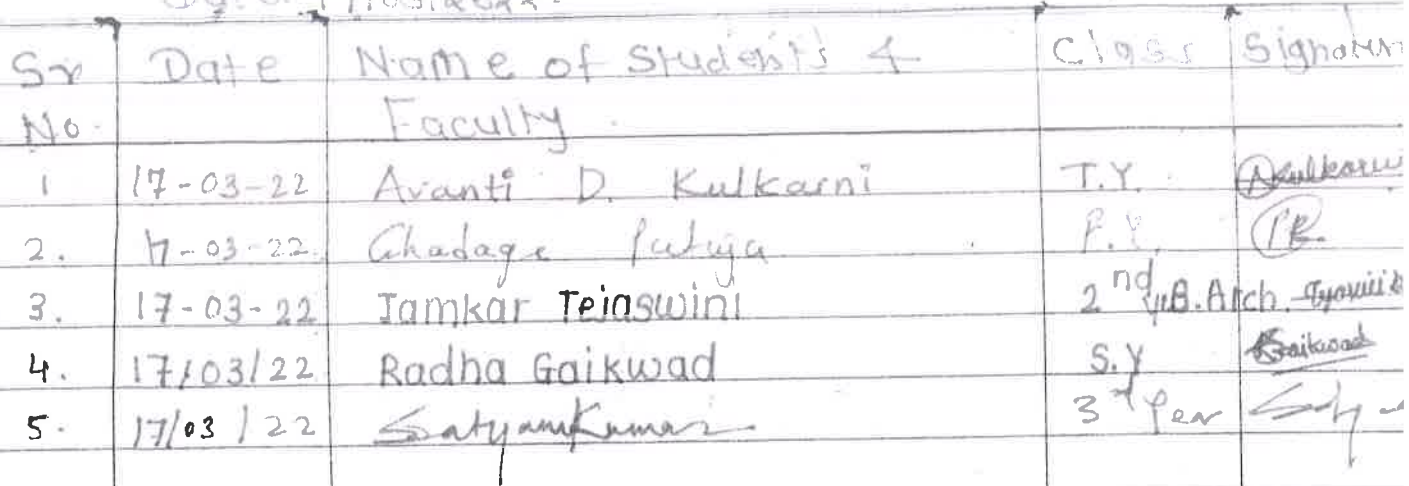 Sr Date Name of Students & Class Signature
No. Faculty.
1 17-03-22 Avanti D. Kulkarni T.Y. AKulkarni
2. 17-03-22 Ghadage F.Y.
3. 17-03-22 Jamkar Tejaswini 2nd yr B.Arch.
4. 17/03/22 Radha Gaikwad S.Y Gaikwad
5. 17/03/22 Satyam Kumar 3rd Year